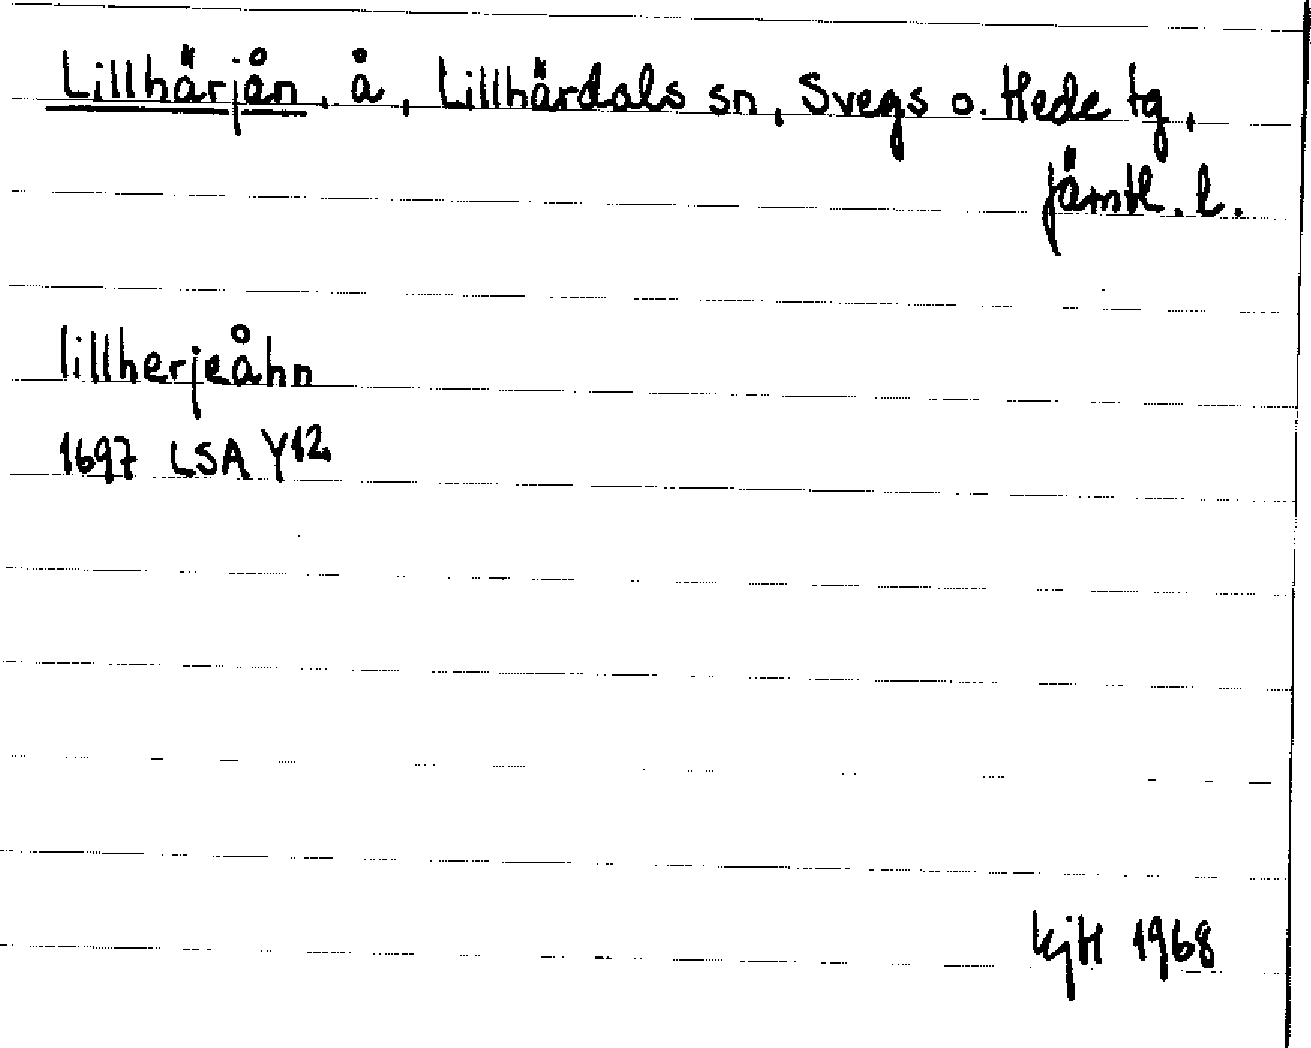 Lillhärjån, å, Lillhärdals sn, Svegs o. Hede tg,
Jämtl. l.
lillherjeåhn
1697 LSA Y12
KjH 1968